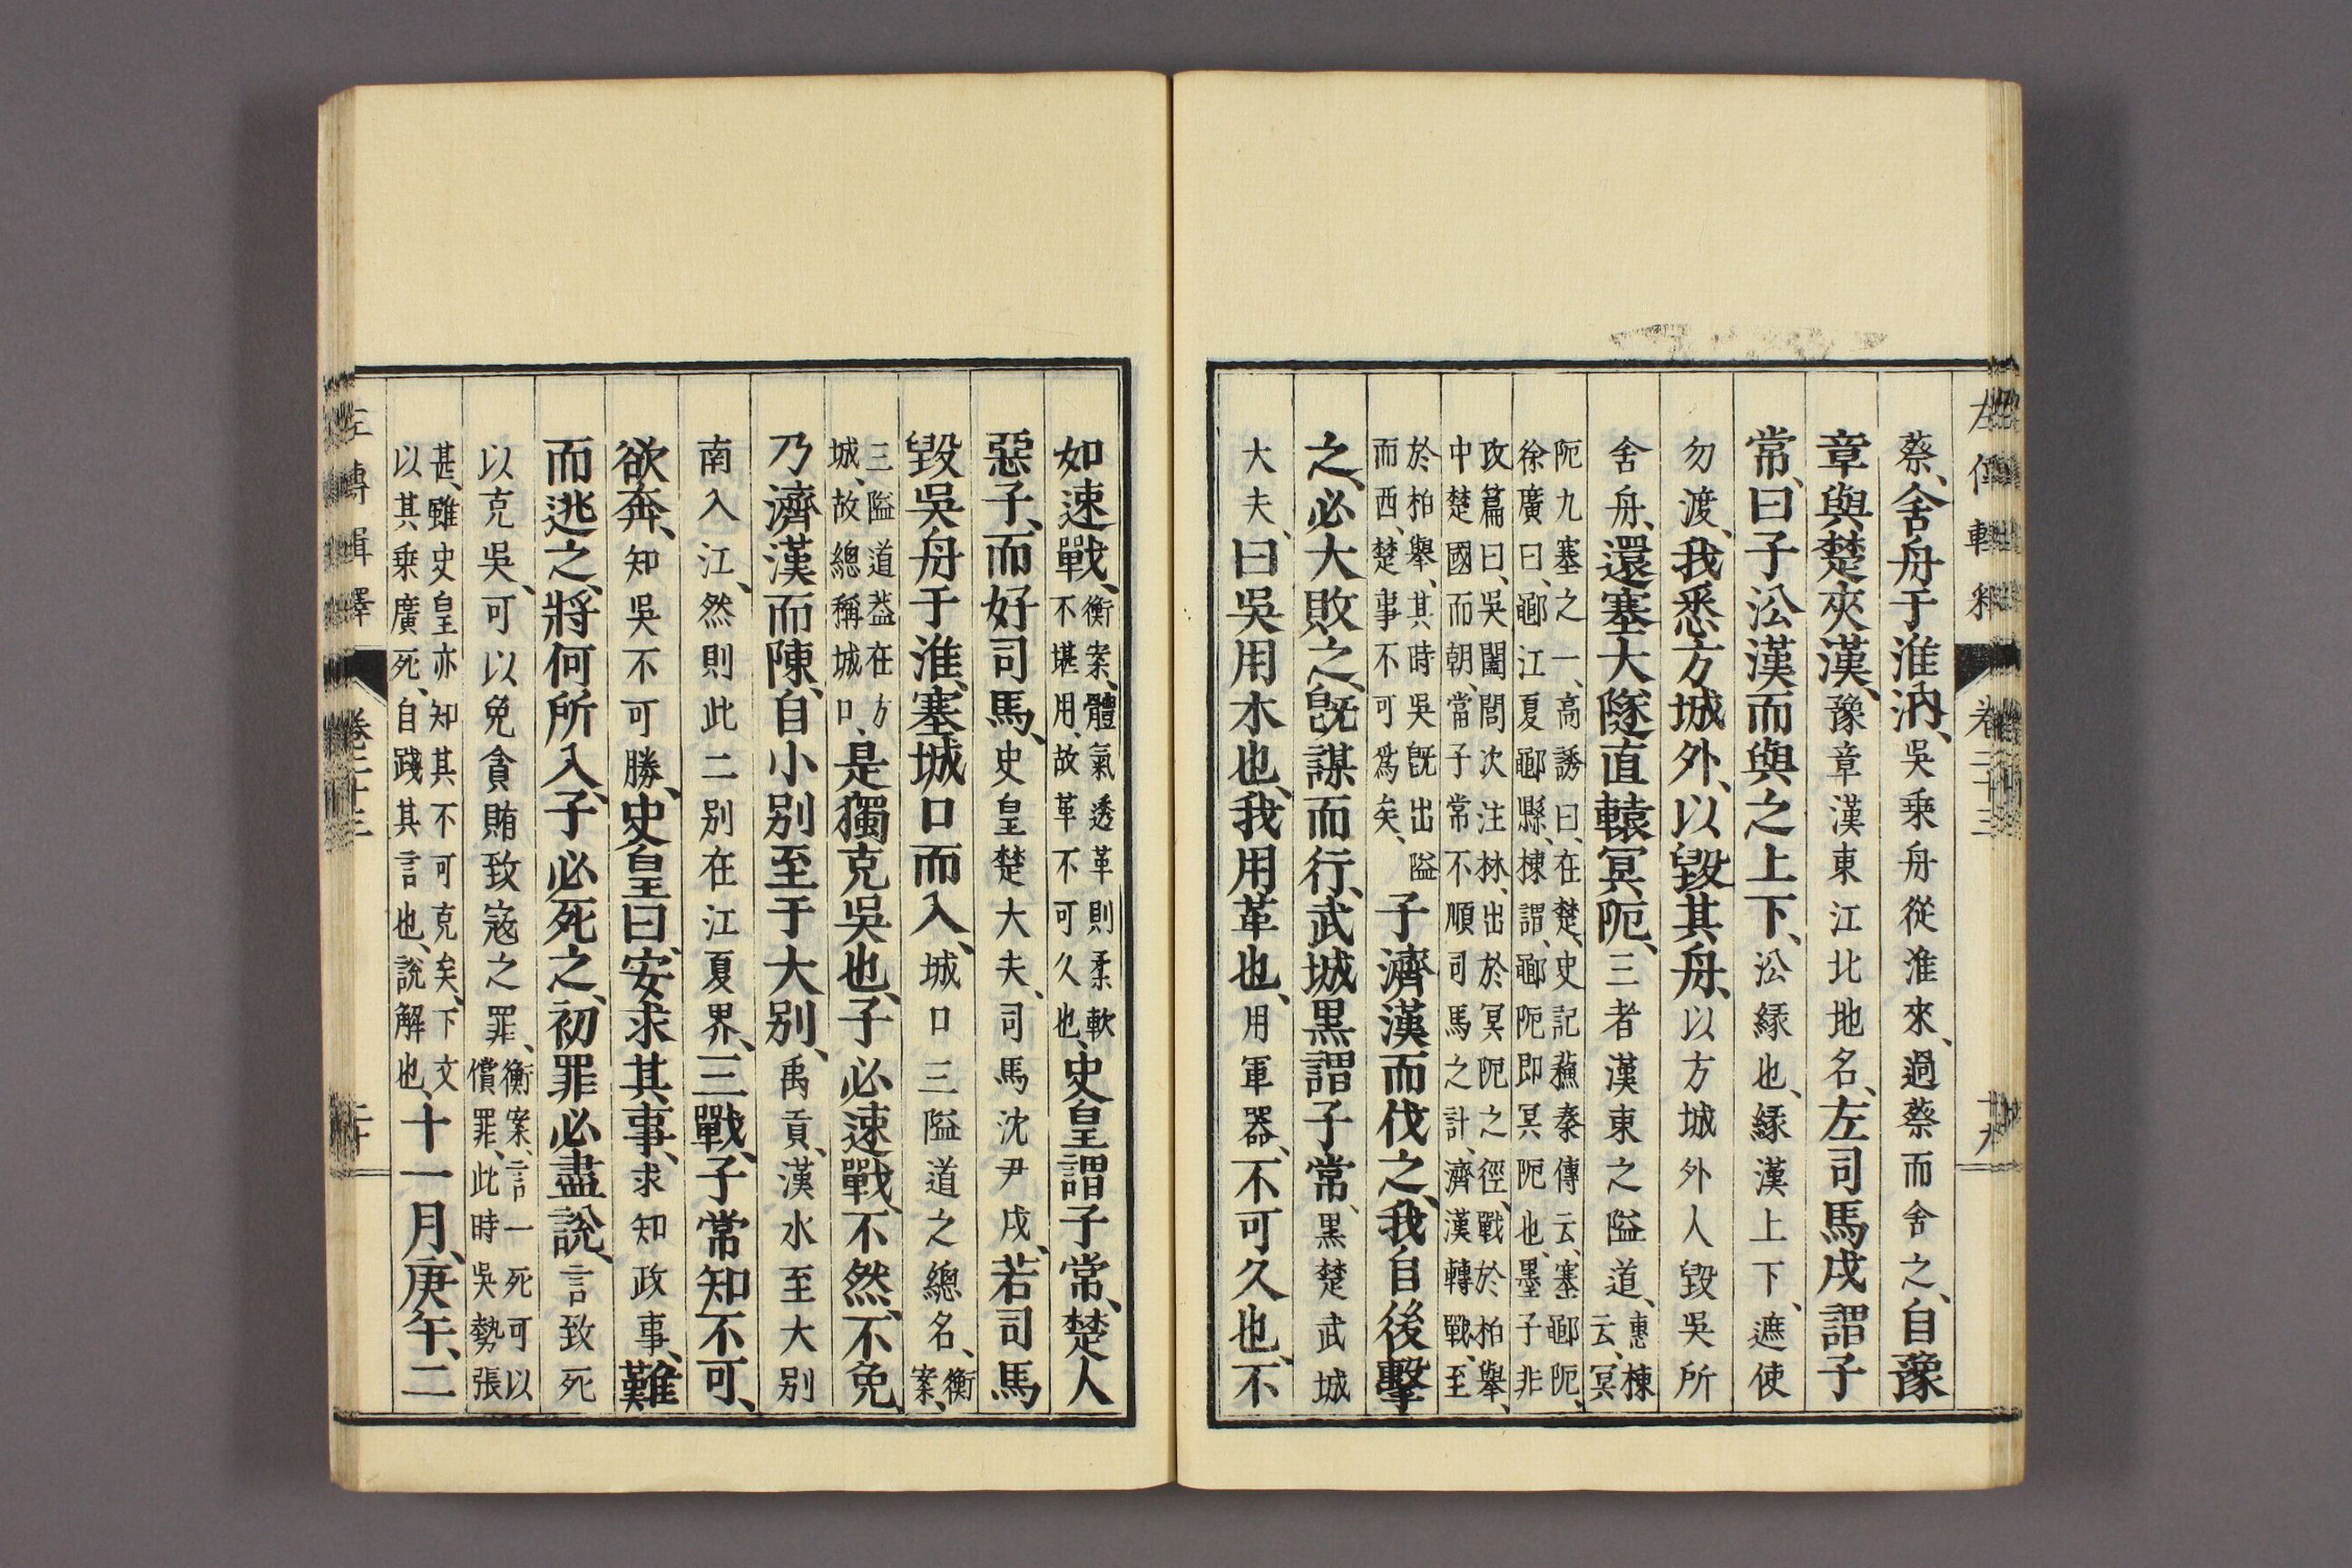 蔡、舍舟于淮汭、吳乘舟從淮來、過蔡而舍之、自豫
章與楚夾漢、豫章漢東江北地名、左司馬戌謂子
常、曰子㳂漢而與之上下、㳂縁也、縁漢上下、遮使
勿渡、我悉方城外、以毀其舟、以方城外人毀吳所
舍舟、還塞大隧直轅冥阨、三者漢東之隘道、惠棟云、冥
阨九塞之一、高誘曰、在楚、史記蘓秦傳云、塞鄳阨、
徐廣曰、鄳江夏鄳縣、棟謂、鄳阨即冥阨也、墨子非
攻篇曰、吳闔閭次注林、出於冥阨之徑、戰於柏舉、
中楚國而朝、當子常不順司馬之計、濟漢轉戰、至
於柏舉、其時吳既出隘
而西、楚事不可爲矣、子濟漢而伐之、我自後擊
之、必大敗之、既謀而行、武城黒謂子常、黒楚武城
大夫、曰吳用木也、我用革也、用軍器、不可久也、不
如速戰、衡案、體氣透革則柔軟不堪用、故革不可久也、史皇謂子常、楚人
惡子、而好司馬、史皇楚大夫、司馬沈尹戌、若司馬
毀吳舟于淮、塞城口而入、城口三隘道之總名、衡案、
三隘道葢在方城、故總稱城口、是獨克吳也、子必速戰、不然、不免
乃濟漢而陳、自小別至于大別、禹貢、漢水至大別
南入江、然則此二別在江夏界、三戰、子常知不可、
欲奔、知吳不可勝、史皇曰、安求其事、求知政事、難
而逃之、將何所入、子必死之、初罪必盡說、言致死
以克吳、可以免貪賄致寇之罪、衡案、言一死可以償罪、此時吳勢張
甚、雖史皇亦知其不可克矣、下文以其乘廣死、自踐其言也、說解也、十一月、庚午、二
左傳輯釋
卷二十三